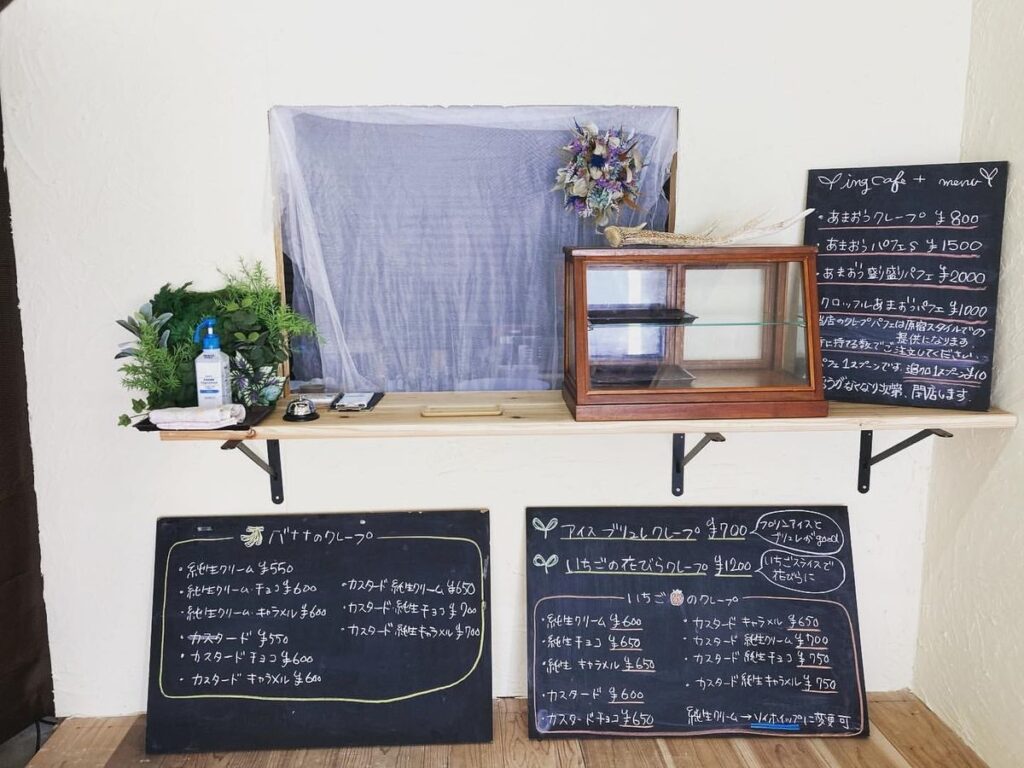 ing cafe + menu
・あまおうクレープ ¥800
・あまおうパフェS ¥1500
・あまおう盛り盛りパフェ ¥2000
クロッフルあまおうパフェ ¥1000
当店のクレープパフェは原宿スタイルでの
提供になります
に持てる数でご注文してください
パフェ1スプーンです。追加1スプーン¥10
がなくなり次第、閉店します。
バナナのクレープ
・純生クリーム ¥550
・純生クリーム・チョコ ¥600
・純生クリーム・キャラメル ¥600
・カスタード ¥550
・カスタード チョコ ¥600
・カスタード キャラメル ¥600
・カスタード 純生クリーム ¥650
・カスタード・純生チョコ ¥700
・カスタード 純生キャラメル ¥700
アイス ブリュレクレープ ¥700
プリンアイスと
ブリュレがgood
いちごの花びらクレープ ¥1200
いちごスライスで
花びらに
いちごのクレープ
・純生クリーム ¥600
・純生チョコ ¥650
・純生 キャラメル ¥650
・カスタード ¥600
・カスタードチョコ ¥650
・カスタード キャラメル ¥650
・カスタード 純生クリーム ¥700
・カスタード 純生チョコ ¥750
・カスタード 純生キャラメル ¥750
純生クリーム→ソイホイップに変更可